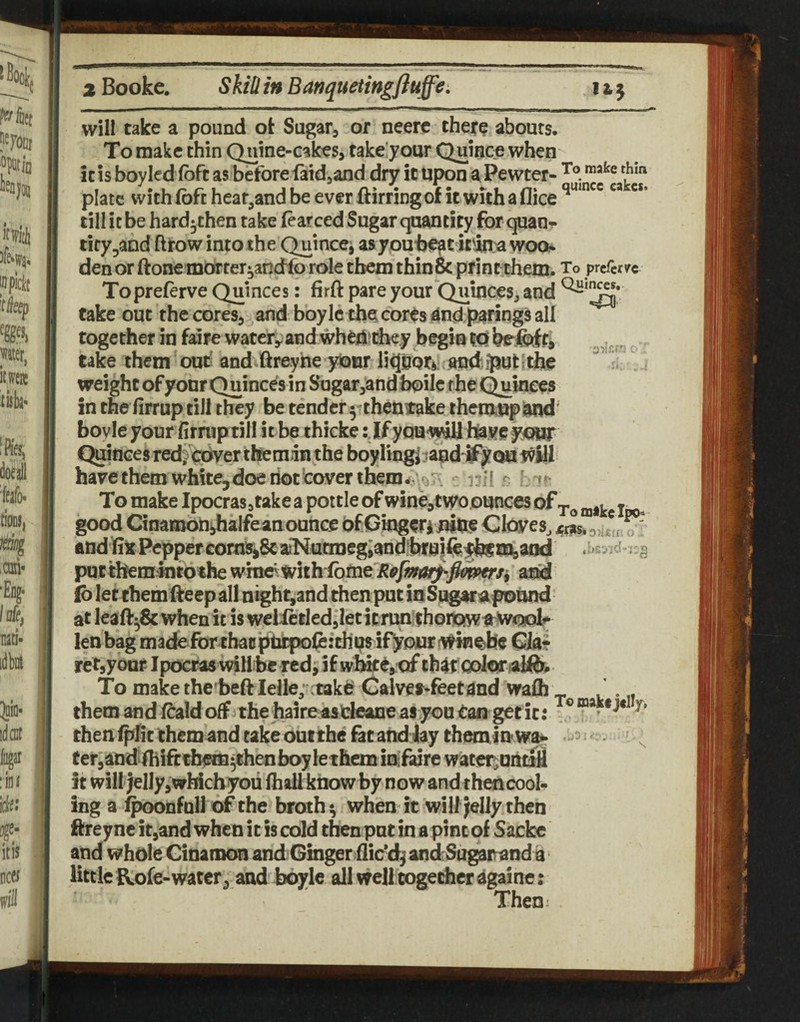 2 Booke. Skill in Banquetingſtuffe. 123
will take a pound of Sugar, or neere there abouts.
To make thin Quine-cakes, take your Quince when
it is boyled ſoft as before ſaid,and dry it upon a Pewter-
To make thin
quince cakes.
plate with ſoft heat,and be ever ſtirring of it with a ſlice
till it be hard;then take ſearced Sugar quantity for quan-
tity,and ſtrow into the Quince, as you beat it in a woo-
den or ſtone morter;and ſo role them thin & print them.
To preſerve
Quinces.
To preſerve Quinces: firſt pare your Quinces, and
take out the cores, and boyle the cores and parings all
together in faire water, and when they begin to be ſoft,
take them out and ſtreyne your liquor, and put the
weight of your Quinces in Sugar,and boile the Quinces
in the ſirrup till they be tender; then take them up and
boyle your ſirrup till it be thicke: If you will have your
Quinces red, cover them in the boyling; and if you will
have them white, doe not cover them.
To make Ipocras,take a pottle of wine,two ounces of
To make Ipo-
cras.
good Cinamon,halfe an ounce of Ginger, nine Cloves,
and ſix Pepper corns,& a Nutmeg,and bruiſe them,and
put them into the wine with ſome Roſmary-flowers, and
ſo let them ſteep all night,and then put in Sugar a pound
at leaſt;& when it is wel ſetled,let it run thorow a wool-
len bag made for that purpoſe:thus if your wine be Cla-
ret,your Ipocras will be red, if white, of that color alſo.
To make the beſt Ielle, take Calves-feet and waſh
To make jelly.
them and ſcald off the haire as cleane as you can get it:
then ſplit them and take out the fat and lay them in wa-
ter,and ſhift them;then boyle them in faire water untill
it will jelly,which you ſhall know by now and then cool-
ing a ſpoonfull of the broth; when it will jelly then
ſtreyne it,and when it is cold then put in a pint of Sacke
and whole Cinamon and Ginger ſlic'd, and Sugar and a
little Roſe-water, and boyle all well together againe:
Then